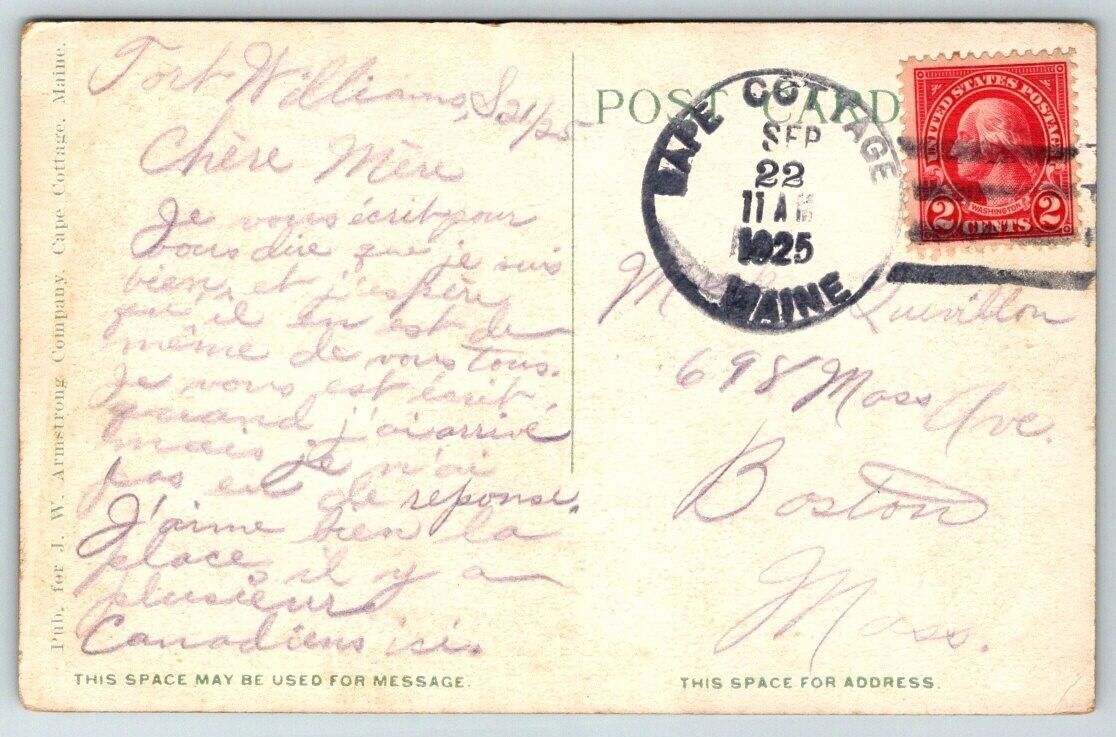 Pub. for J. W. Armstrong Company, Cape Cottage, Maine.
Fort Williams, S21/25
Chère Mère
Je vous écrit pour
vous dire que je suis
bien, et j'espère
qu'il en est de
même de vous tous.
Je vous est écrit,
quand j'ai arrivé
mais je n'ai
pas eu de réponse.
J'aime bien la
place, il y a
plusieurs
Canadiens ici.
THIS SPACE MAY BE USED FOR MESSAGE.
POST CARD
CAPE COTTAGE
SEP
22
11 AM
1925
MAINE
UNITED STATES POSTAGE
WASHINGTON
2 CENTS 2
Quevillon
698 Mass Ave.
Boston
Mass.
THIS SPACE FOR ADDRESS.